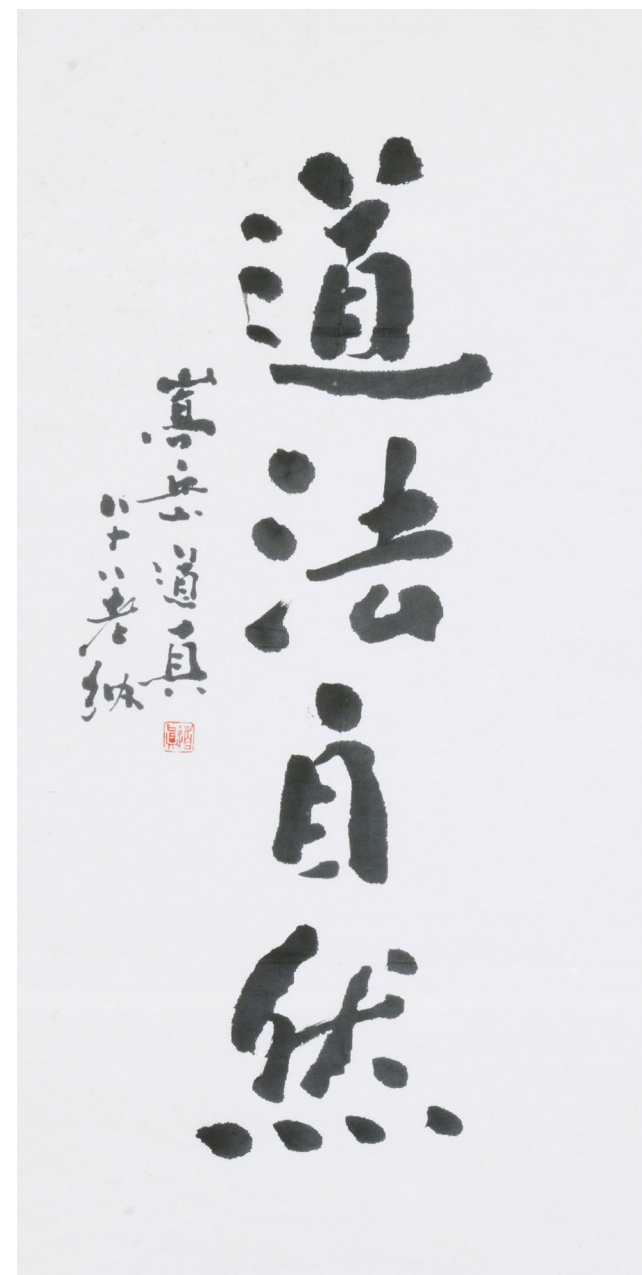 道法自然
嵩岳道真
八十八老衲
道真